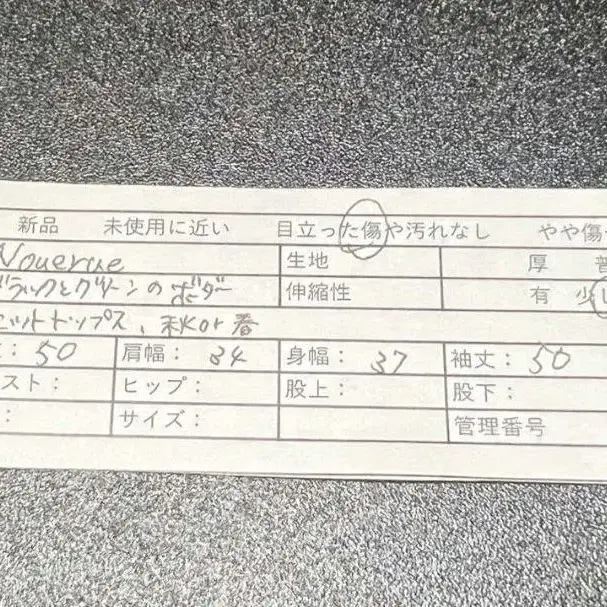 新品 未使用に近い 目立った傷や汚れなし やや傷
生地 厚 普
ブラックとグリーンのボーダー 伸縮性 有 少し
ニットトップス、秋or春
: 50 肩幅: 34 身幅: 37 袖丈: 50
スト: ヒップ: 股上: 股下:
: サイズ: 管理番号